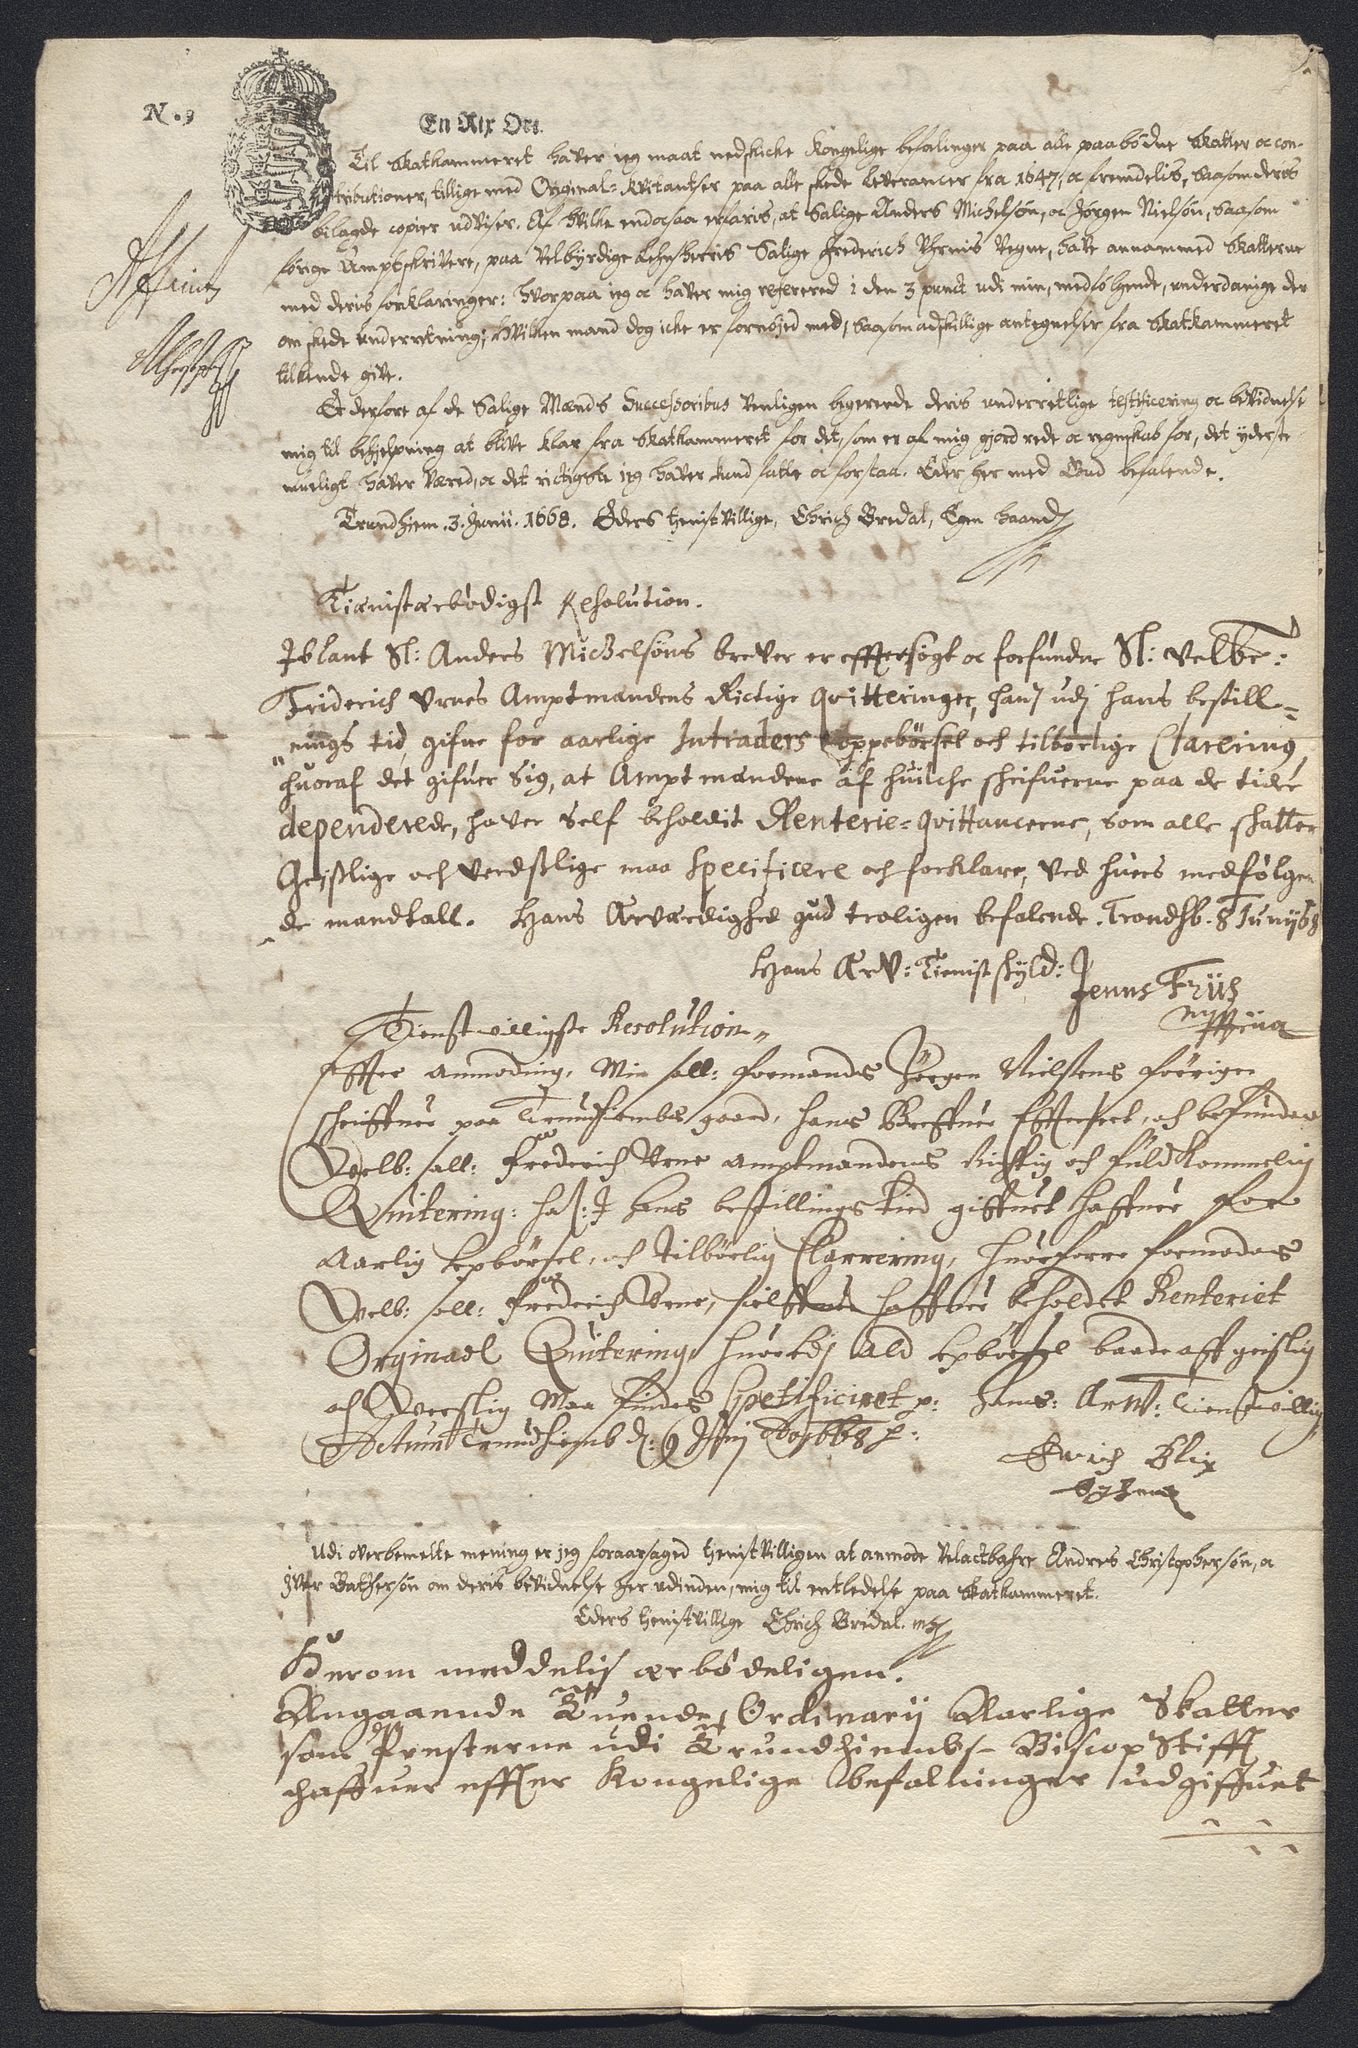 N. 9
En Rix Ort.
Til Skatkammeret haver jeg maat nedskicke Kongelige befalinger paa alle paabödne Skatter oc con-
tributioner, tillige med Original-Kvitantser paa alle skede Leverancer fra 1647, oc fremdelis, saasom deris
bilagde copier udviser. Af hvilke endocsaa erfaris, at Salige Anders Michelsön, oc Jörgen Nielsön, saasom
forige Amptskrivere, paa Velbyrdige Lehnsherris Salige Frederich Uhrnis Vegne, have annammed Skatterne
med deris forklaringer: hvorpaa jeg oc haver mig referered i den 3 punct udi min, medfölgende, underdanige der
om skede underretning; hvilken mand dog icke er fornöjed med, saasom adskillige antegnelser fra Skatkammeret
tilkiende give.
Er derfore af de Salige Mænds Successoribus venligen begerende deris underretlige testificering oc bevidnelse
mig til behielpning at blive klar fra Skatkammeret for det, som er af mig gjord rede oc regenskab for, det yderste
mueligt haver været, oc det rictigste jeg haver kund fatte oc forstaa. Eder her med Gud befalende.
Trundhiem. 3. Junii. 1668. Eders tienistvillige, Ehrich Bredal, Egen haand
Tienistærbödigst Resolution.
Iblant Sl: Anders Michelsöns brever er effttersögt oc forfunden Sl: Velbr:
Friderich Urnes Amptmandens Rictige Qvitteringer, hans udj hans bestill=
nings tid, gifne for aarlige Intraders oppebörsel och tilbörlige Clarering,
huoraf det gifuer sig, at Amptmandene af huilche schrifuerne paa de tider
dependerede, haver self beholdit Renterie=Qvittancerne, som alle skatter
Geistlige och Verdslige maa Specificere och forklare, ved huers medfölgen
de mandtall. Hans Ærværdighed gud troligen befalende. Trondhb. 8 Junij 68
Hans ÆrV: Tienistskyld:
Jenns Friis
Tienstwilligste Resolution
Effter anmoding, Min sall: formands Jörgen Nielsens forrige
schriffuer paa Trundhiembs gaard, hans Breffuer Effterseet, och befunden
Welb: sall: Frederich Urne amptmandens Richtig och fuldkommelig
Quitering: haf: I hans bestillings tied giffuet haffuer for
Aarlig opbörsel, och tilbörlig Clarrering, huorforre formodes
Welb: sall: Frederich Urne, sielff haffuer beholdet Renteriet
Orginael Quitering, huor udj Ald opbörsel baade aff geistlig
och Verslig Maa findes Spetificiret p: hans: ArW: Tienstwillig
Actum Trundhiemb d: 9 Junij Ao 1668 p:
Erich Blix
Udi overbemelte mening er jeg foraarsaged tienistvilligen at anmode Velactbahre Andres Christophersön, oc
Iver Bathersön om deris bevidnelse her udinden, mig til entledelse paa Skatkammeret.
Eders tienistvillige Ehrich Bredal. mp
Herom meddelis ærbödeligen.
Angaaende Tuende Ordinarij Aarlige Skatter
som Presterne udi Trundhiembs Biscop Stifft
haffuer effter Kongelige befalninger udgiffuet